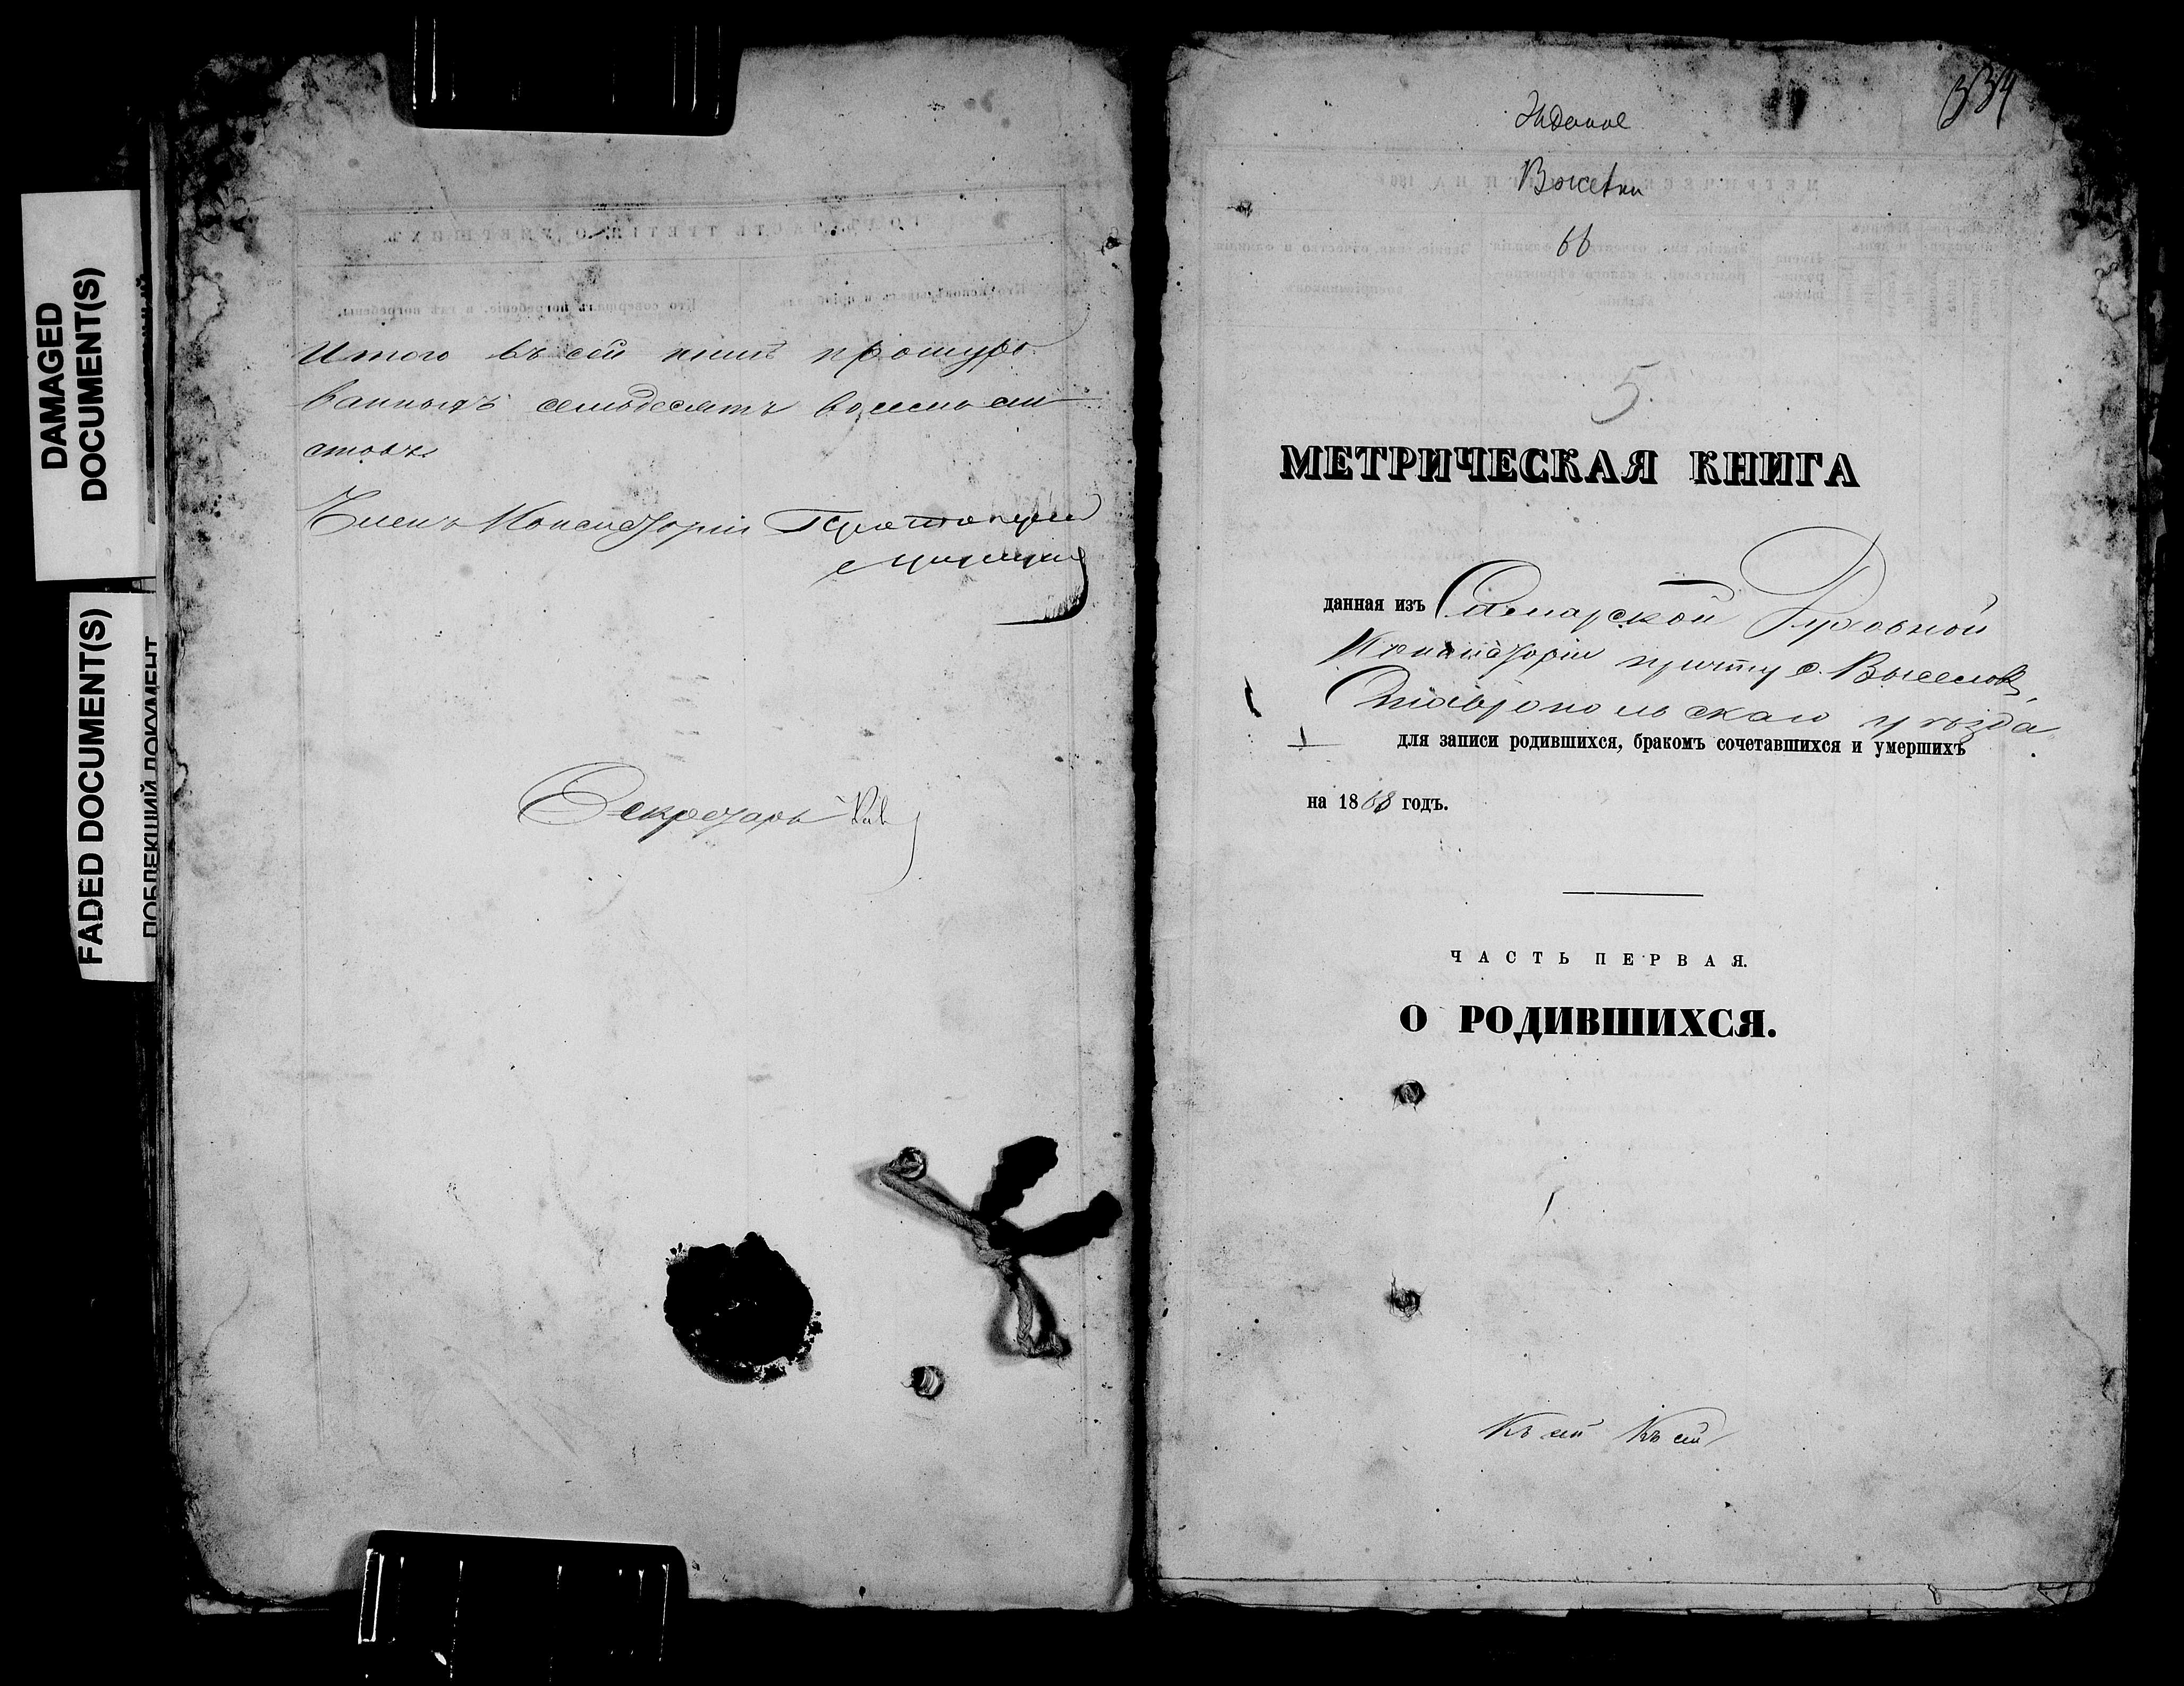 DAMAGED
DOCUMENT(S)
FADED DOCUMENT(S)
Итого въ сей книгѣ прошуро
ванныхъ семьдесятъ восемь ли
стовъ.
Членъ Консисторіи Протоіерей
Секретарь
334
Выселки
66
5
МЕТРИЧЕСКАЯ КНИГА
данная изъ Самарской Духовной
Консисторіи причту с. Выселокъ
Ставропольскаго уѣзда
для записи родившихся, бракомъ сочетавшихся и умершихъ
на 1868 годъ.
ЧАСТЬ ПЕРВАЯ.
О РОДИВШИХСЯ.
Къ сей Къ сей